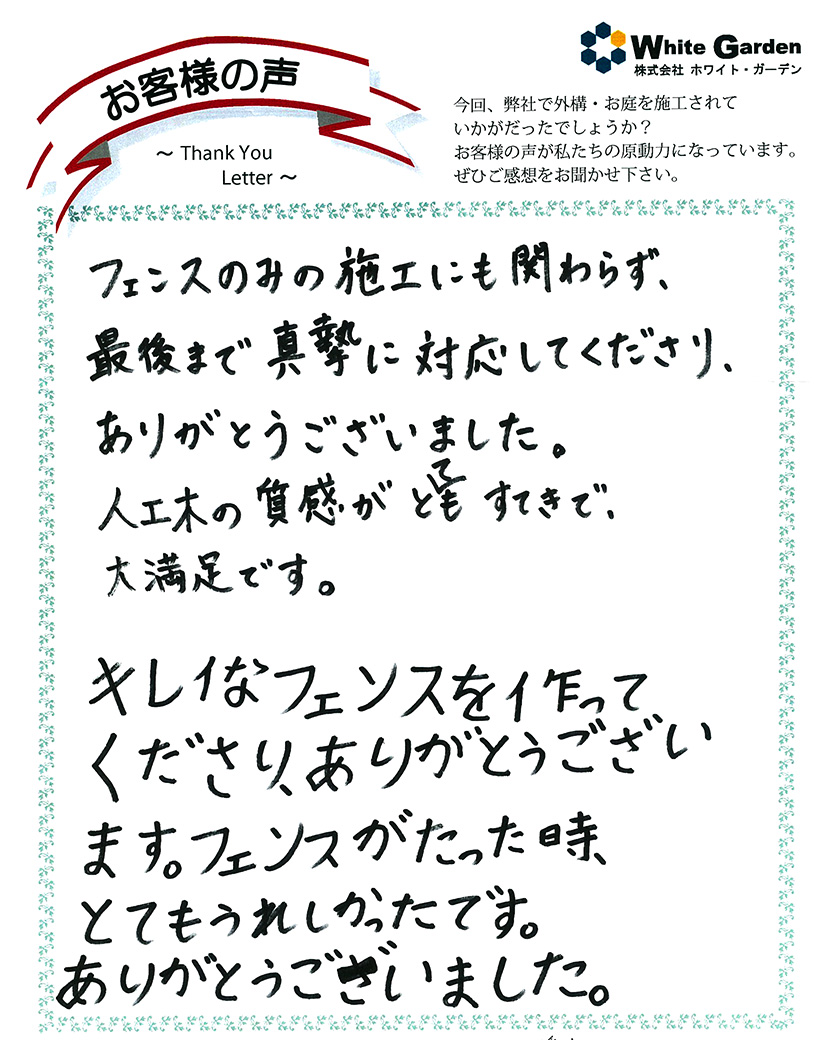 お客様の声
～ Thank You
Letter ～
White Garden
株式会社 ホワイト・ガーデン
今回、弊社で外構・お庭を施工されて
いかがだったでしょうか？
お客様の声が私たちの原動力になっています。
ぜひご感想をお聞かせ下さい。
フェンスのみの施工にも関わらず、
最後まで真摯に対応してくださり、
ありがとうございました。
人工木の質感がとてもすてきで、
大満足です。
キレイなフェンスを作って
くださり、ありがとうござい
ます。フェンスがたった時、
とてもうれしかったです。
ありがとうございました。